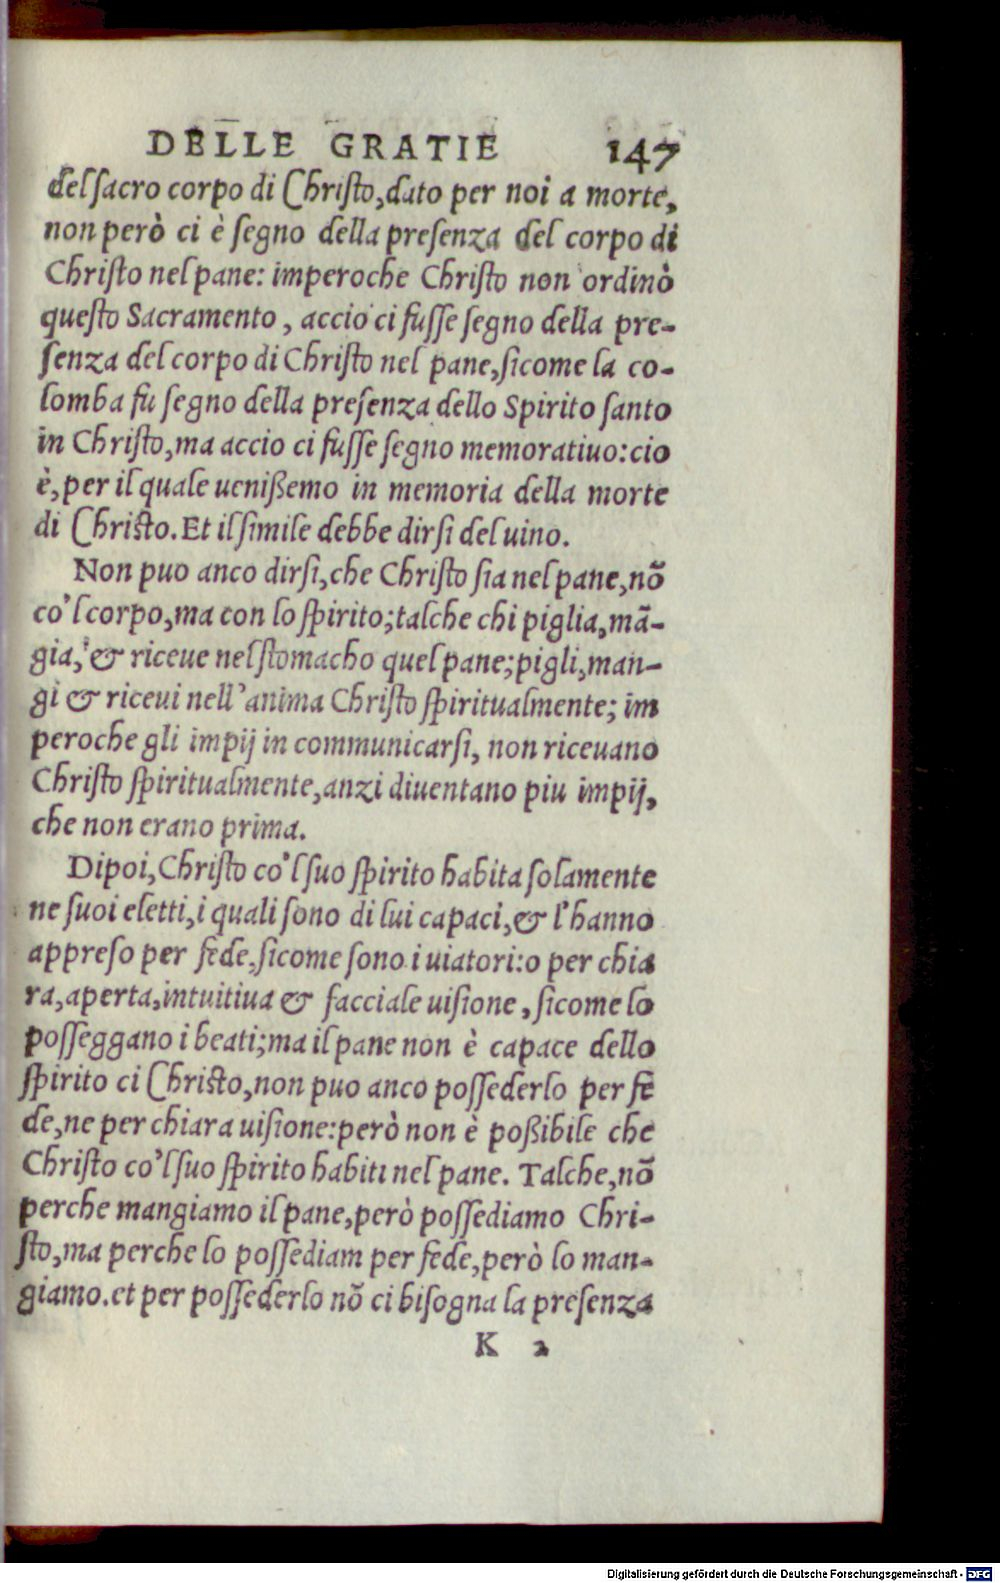 DELLE GRATIE 147
del sacro corpo di Christo, dato per noi a morte,
non però ci è segno della presenza del corpo di
Christo nel pane: imperoche Christo non ordinò
questo Sacramento, accio ci fusse segno della pre-
senza del corpo di Christo nel pane, sicome la co-
lomba fu segno della presenza dello Spirito santo
in Christo, ma accio ci fusse segno memorativo: cio
è, per il quale uenißemo in memoria della morte
di Christo. Et il simile debbe dirsi del uino.
Non puo anco dirsi, che Christo sia nel pane, nõ
co'l corpo, ma con lo spirito; talche chi piglia, mã-
gia, & riceue nel stomacho quel pane; pigli, man-
gi & ricevi nell'anima Christo spiritualmente; im
peroche gli impij in communicarsi, non ricevano
Christo spiritualmente, anzi diventano piu impij,
che non erano prima.
Dipoi, Christo co'l suo spirito habita solamente
ne suoi eletti, i quali sono di lui capaci, & l'hanno
appreso per fede, sicome sono i uiatori: o per chia
ra, aperta, intuitiva & facciale uisione, sicome lo
posseggano i beati; ma il pane non è capace dello
spirito ci Christo, non puo anco possederlo per fe
de, ne per chiara uisione: però non è poßibile che
Christo co'l suo spirito habiti nel pane. Talche, nõ
perche mangiamo il pane, però possediamo Chri-
sto, ma perche lo possediam per fede, però lo man-
giamo. et per possederlo nõ ci bisogna la presenza
K 2
Digitalisierung gefördert durch die Deutsche Forschungsgemeinschaft - DFG